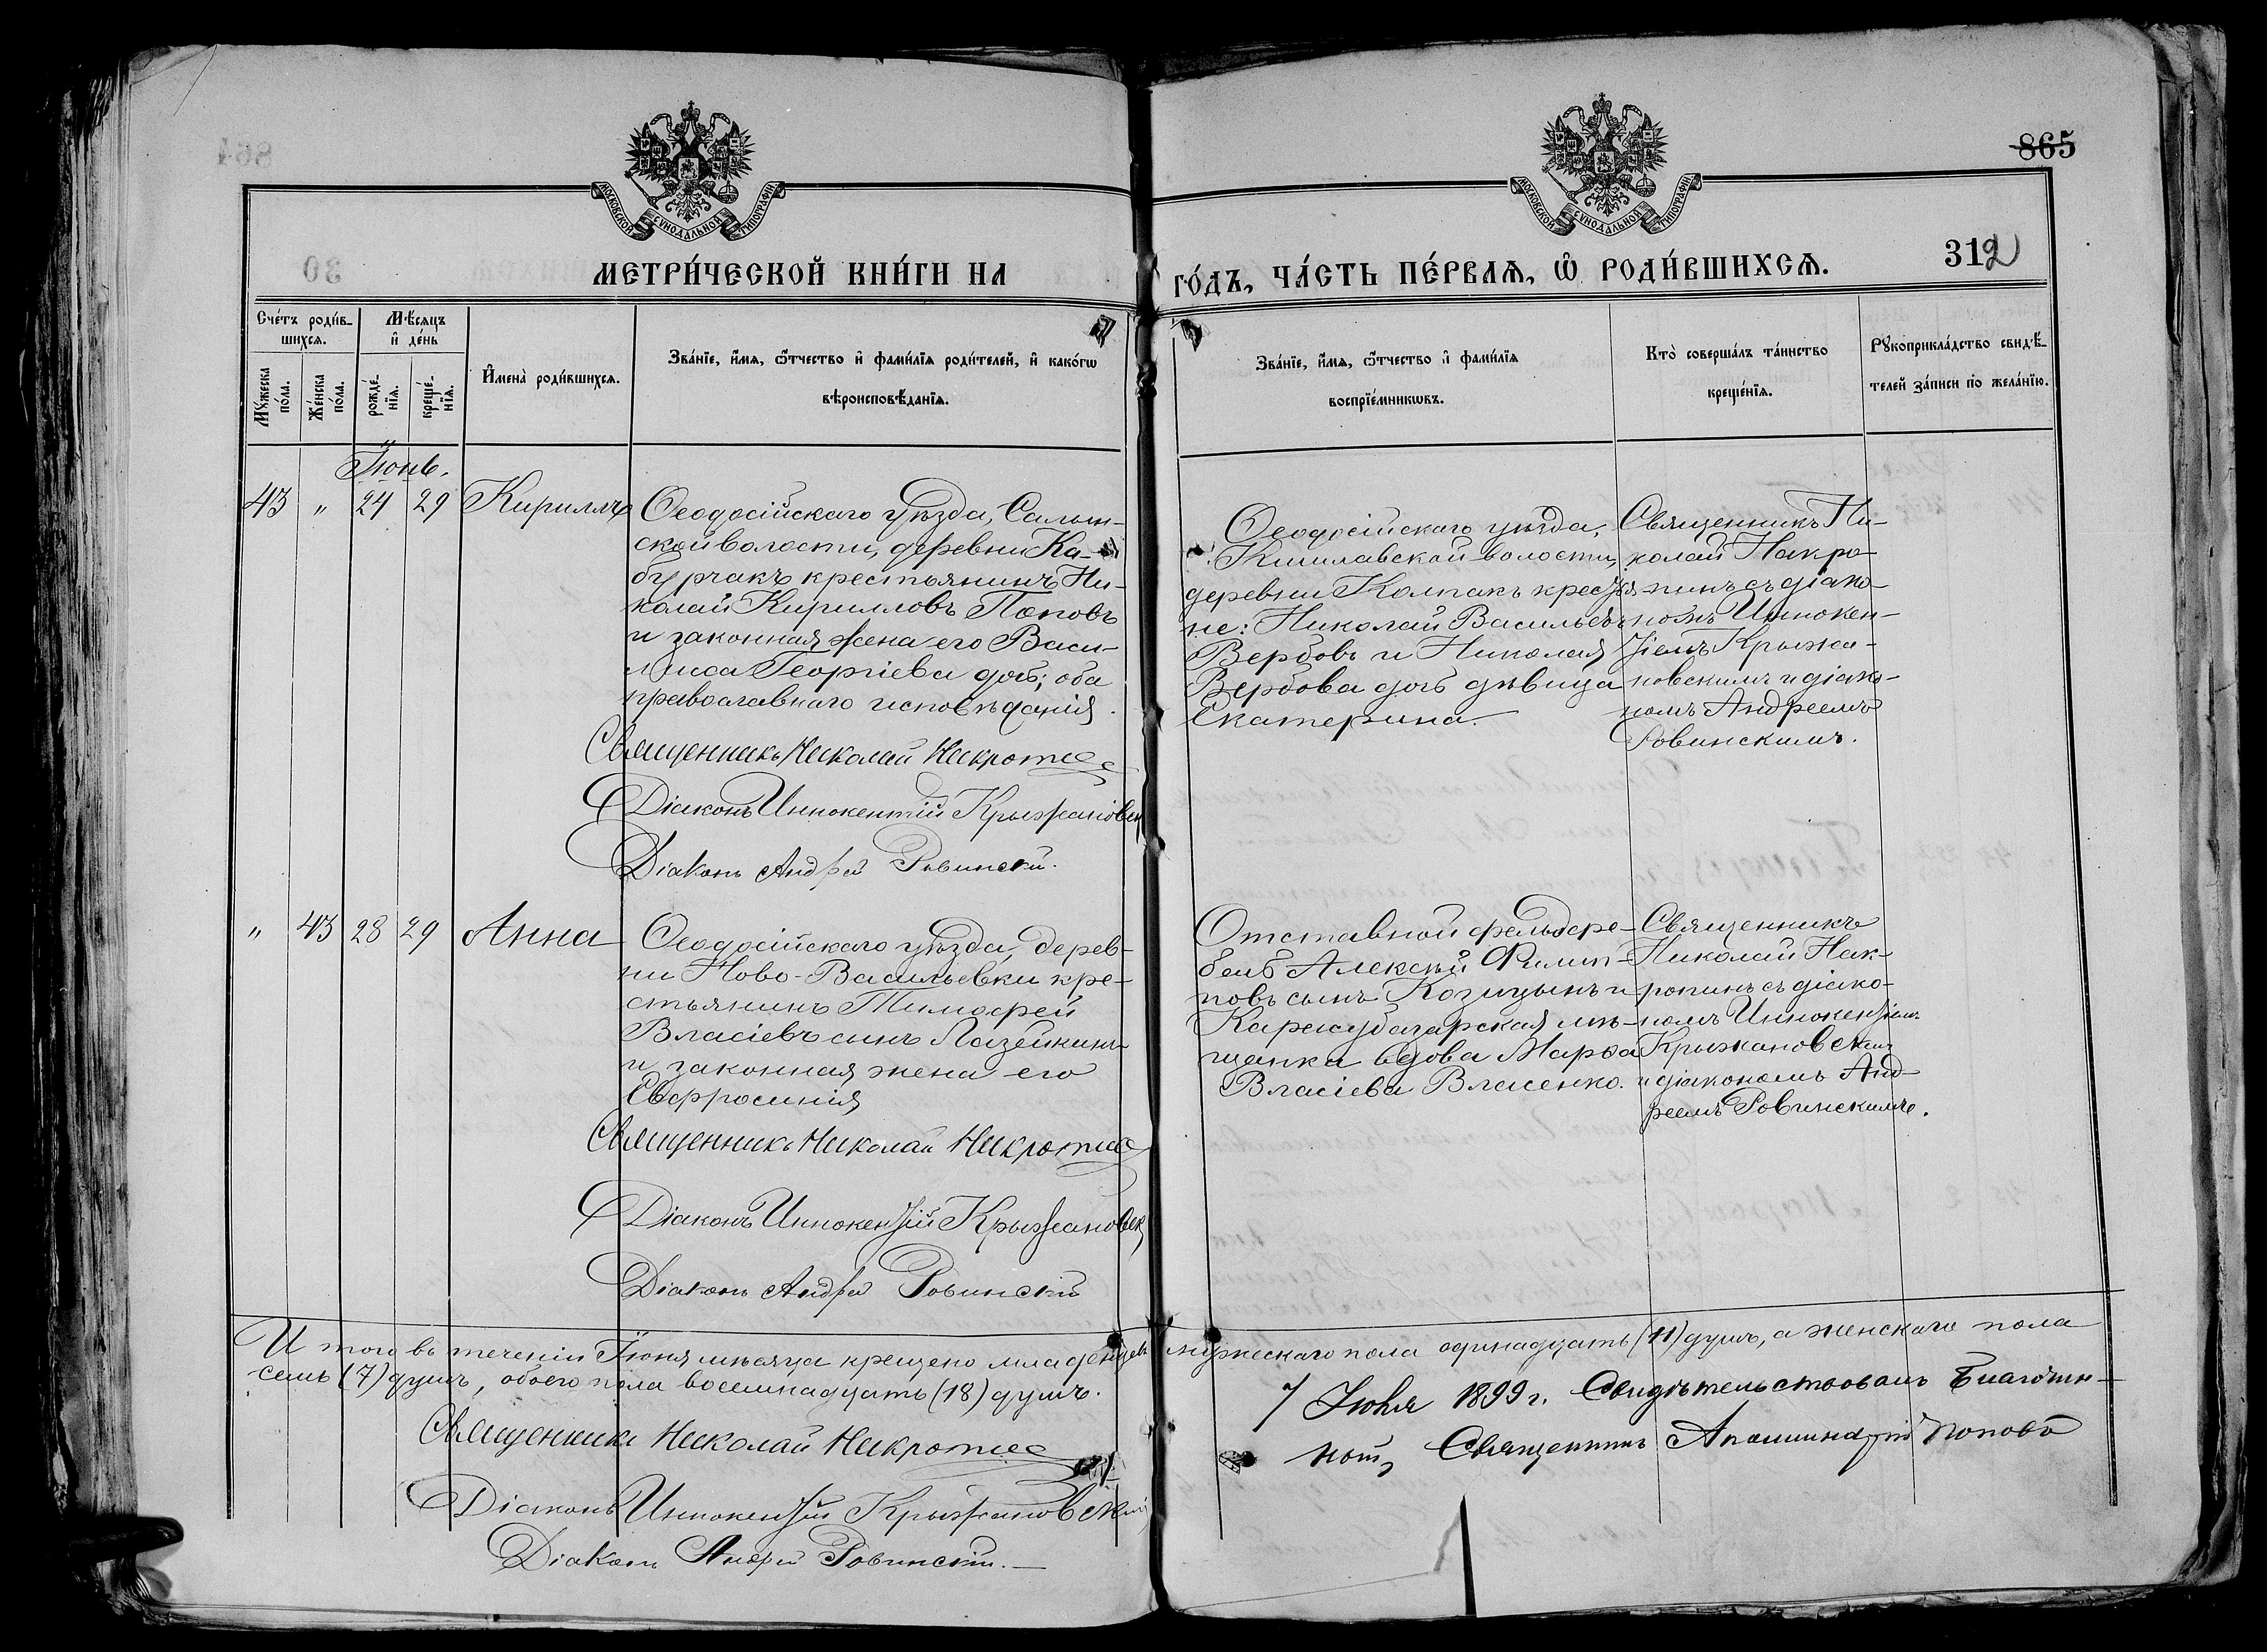 865
МОСКОВСКОЙ СѴНОДАЛЬНОЙ ТИПОГРАФІИ
МОСКОВСКОЙ СѴНОДАЛЬНОЙ ТИПОГРАФІИ
312
МЕТРИ́ЧЕСКОЙ КНИ́ГИ НА
ГО́ДЪ, ЧА́СТЬ ПЕ́РВАѦ, Ѡ҆ РОДИ́ВШИХСѦ.
Сче́тъ роди́в-
шихсѧ.
Мꙋ́жеска по́ла.
Же́нска по́ла.
Мѣ́сѧцъ
и҆ де́нь
рожде́-
нїѧ.
креще́-
нїѧ.
И҆мена̀ роди́вшихсѧ.
Зва́нїе, и҆́мѧ, ѻ҆́тчество и҆ фами́лїѧ роди́телей, и҆ како́гѡ
вѣроисповѣ́данїѧ.
Зва́нїе, и҆́мѧ, ѻ҆́тчество и҆ фами́лїѧ
воспрїе́мникѡвъ.
Кто̀ соверша́лъ та́инство
креще́нїѧ.
Рꙋкоприкла́дство свидѣ́-
телей за́писи по жела́нїю.
Іюнь.
43 " 24 29 Кириллъ
Ѳеодосійскаго уѣзда, Салын-
ской волости, деревни Ка-
бурчакъ крестьянинъ Ни-
колай Кирилловъ Поповъ
и законная жена его Васи-
лиса Георгіева дочь; оба
православнаго исповѣданія.
Священникъ Николай
Діаконъ Иннокентій Крыжановск
Діаконъ Андрей Ровинскій.
Ѳеодосійскаго уѣзда,
Кишлавской волости,
деревни Колпакъ крестья
не: Николай Васильевъ
Вербовъ и Николая
Вербова дочь дѣвица
Екатерина.
Священникъ Ни-
колай Накро-
пинъ съ діако-
номъ Иннокен-
тіемъ Крыжа-
новскимъ и діако-
номъ Андреемъ
Ровинскимъ.
" 43 28 29 Анна
Ѳеодосійскаго уѣзда, дерев-
ни Ново-Васильевки кре-
стьянинъ Тимоѳей
Власіевъ сынъ Лазейкинъ
и законная жена его
Евфросинія
Священникъ Николай
Діаконъ Иннокентій Крыжановск
Діаконъ Андрей Ровинскій
Отставной фельдфе-
бель Алексѣй Филип-
повъ сынъ Козицынъ и
Карасубазарская мѣ-
щанка вдова Марѳа
Власіева Власенко.
Священникъ
Николай Нак-
ропинъ съ діако-
номъ Иннокентіемъ
Крыжановским
и діакономъ Анд-
реемъ Ровинскимъ.
Итого въ теченіи Іюня мѣсяца крещено младенцевъ мужескаго пола одинадцать (11) душъ, а женскаго пола
семь (7) душъ, обоего пола восемнадцать (18) душъ.
Священникъ Николай
Діаконъ Иннокентій Крыжановскій
Діаконъ Андрей Ровинскій.
7 Іюля 1899 г. Свидѣтельствовалъ Благочин-
ный, Священникъ Аполлинарій Поповъ